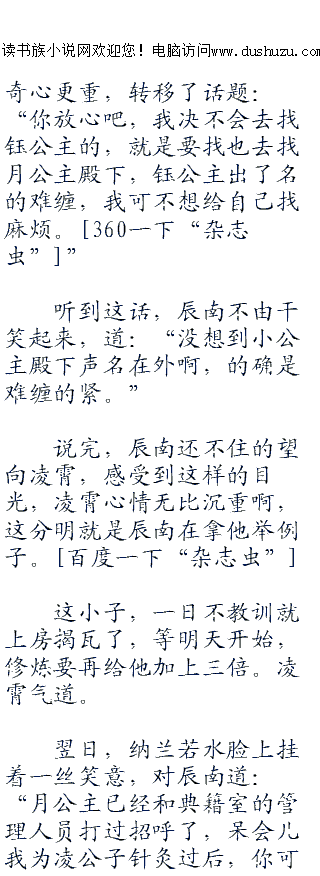 读书族小说网欢迎您！电脑访问www.dushuzu.com
奇心更重，转移了话题：
“你放心吧，我决不会去找
钰公主的，就是要找也去找
月公主殿下，钰公主出了名
的难缠，我可不想给自己找
麻烦。[360一下“杂志
虫”]”
听到这话，辰南不由干
笑起来，道：“没想到小公
主殿下声名在外啊，的确是
难缠的紧。”
说完，辰南还不住的望
向凌霄，感受到这样的目
光，凌霄心情无比沉重啊，
这分明就是辰南在拿他举例
子。[百度一下“杂志虫”]
这小子，一日不教训就
上房揭瓦了，等明天开始，
修炼要再给他加上三倍。凌
霄气道。
翌日，纳兰若水脸上挂
着一丝笑意，对辰南道：
“月公主已经和典籍室的管
理人员打过招呼了，呆会儿
我为凌公子针灸过后，你可